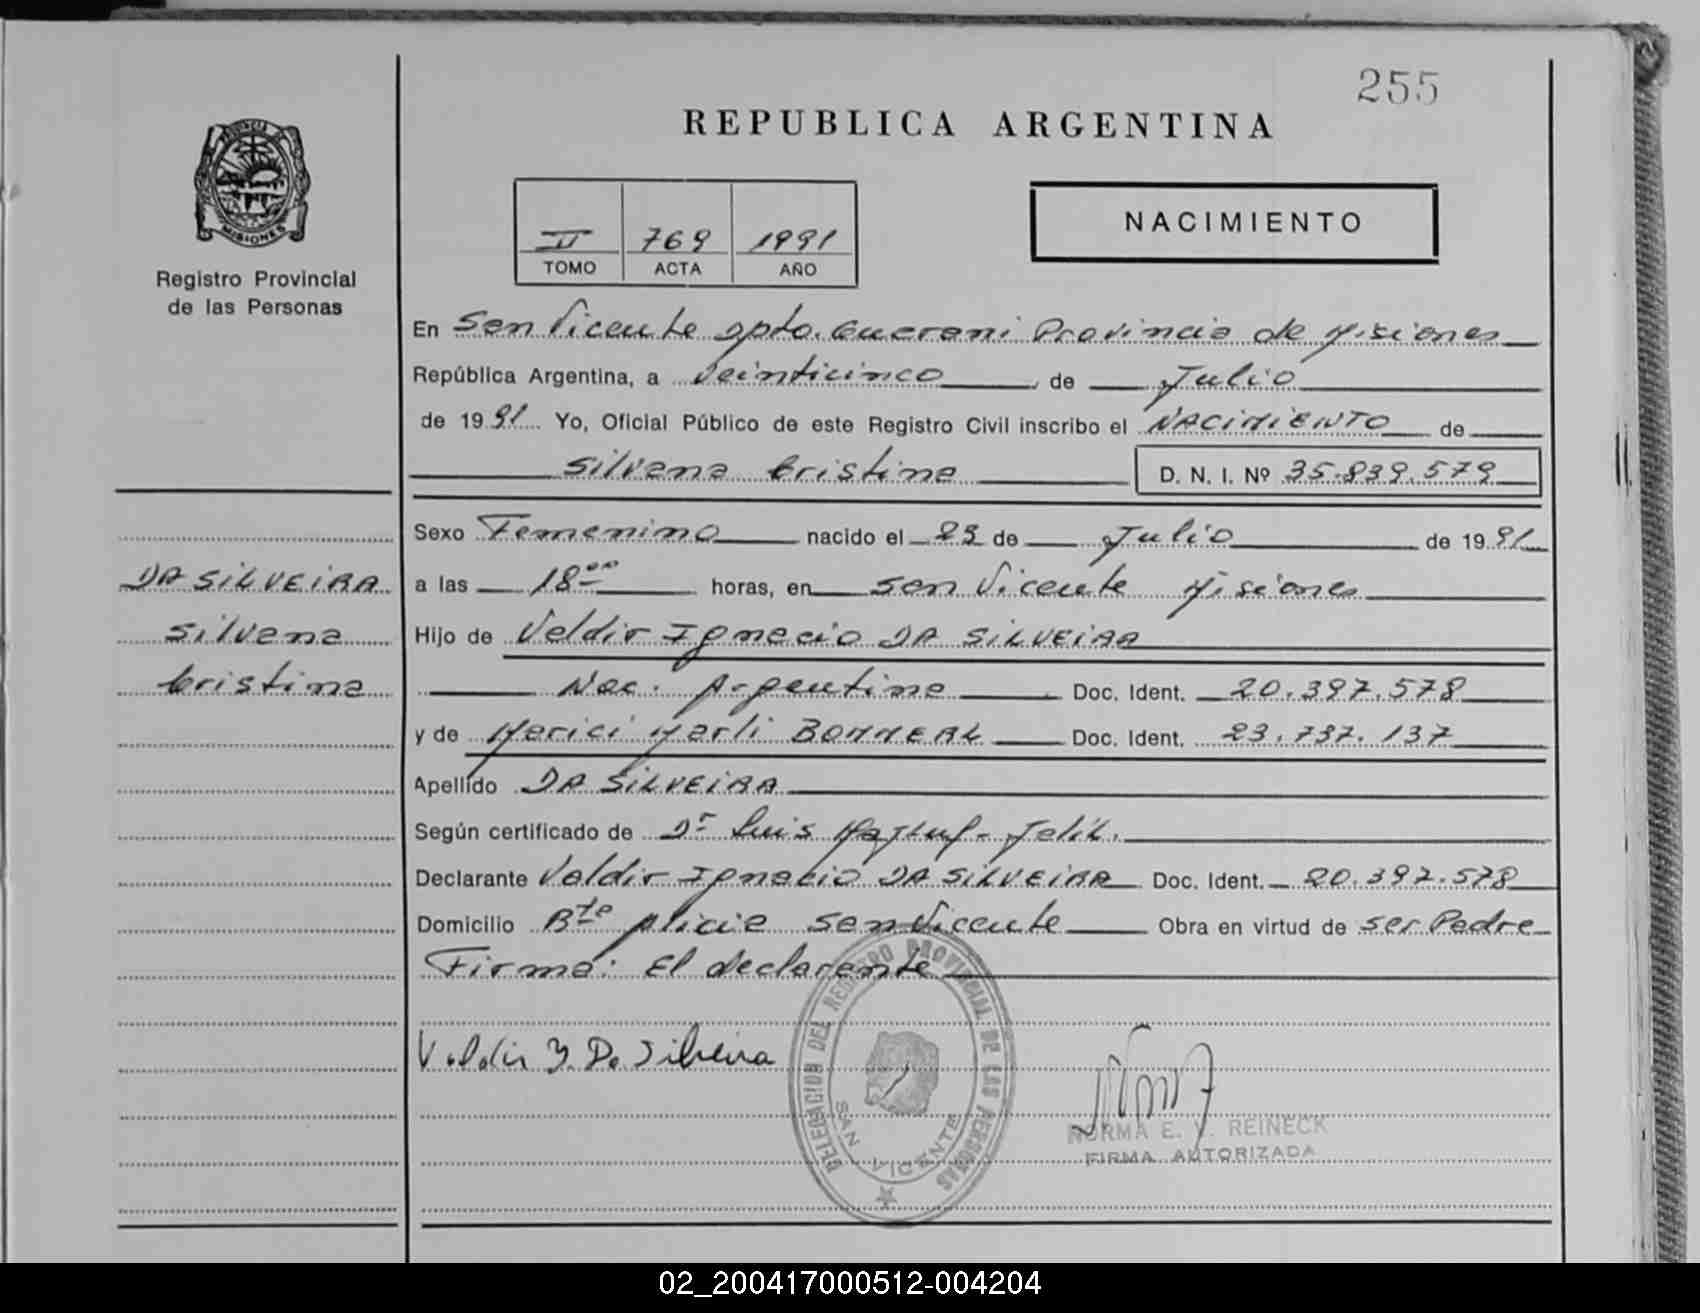 255
REPUBLICA ARGENTINA
PROVINCIA DE
MISIONES
Registro Provincial
de las Personas
II 769 1991
TOMO ACTA AÑO
NACIMIENTO
En San Vicente Dpto. Guarani Provincia de Misiones
República Argentina, a Veinticinco de Julio
de 1991 Yo, Oficial Público de este Registro Civil inscribo el NACIMIENTO de
Silvana Cristina D. N. I. Nº 35.839.579
Sexo Femenino nacido el 23 de Julio de 1991
DA SILVEIRA
Silvana
Cristina
a las 18 00 horas, en San Vicente Misiones
Hijo de Valdir Ignacio DA SILVEIRA
Nac. Argentina Doc. Ident. 20.397.578
y de Marici Marli Doc. Ident. 23.737.137
Apellido DA SILVEIRA
Según certificado de Dr Luis
Declarante Valdir Ignacio DA SILVEIRA Doc. Ident. 20.397.578
Domicilio Bte San Vicente Obra en virtud de ser Padre
Firma: El declarante
Valdir Y. Da Silveira
DELEGACION DEL REGISTRO PROVINCIAL DE LAS PERSONAS
SAN VICENTE
NORMA E. V. REINECK
FIRMA AUTORIZADA
02_200417000512-004204